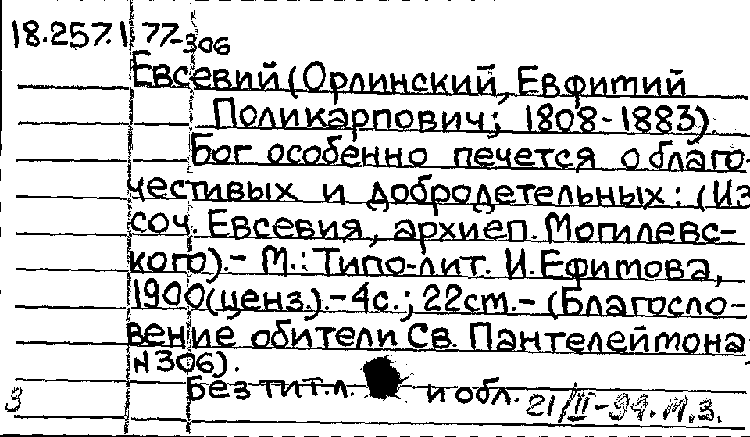 18.257.1.77-306
Евсевий (Орлинский, Евфитий
Поликарпович; 1808-1883).
Бог особенно печется о благо-
честивых и добродетельных: (Из
соч. Евсевия, архиеп. Могилевс-
кого).- М.: Типо-лит. И. Ефимова,
1900(ценз.).-4с.; 22см.- (Благосло-
вение обители Св. Пантелеймона
N306).
Без тит.л. и обл. 21/II-99. М.З.
3